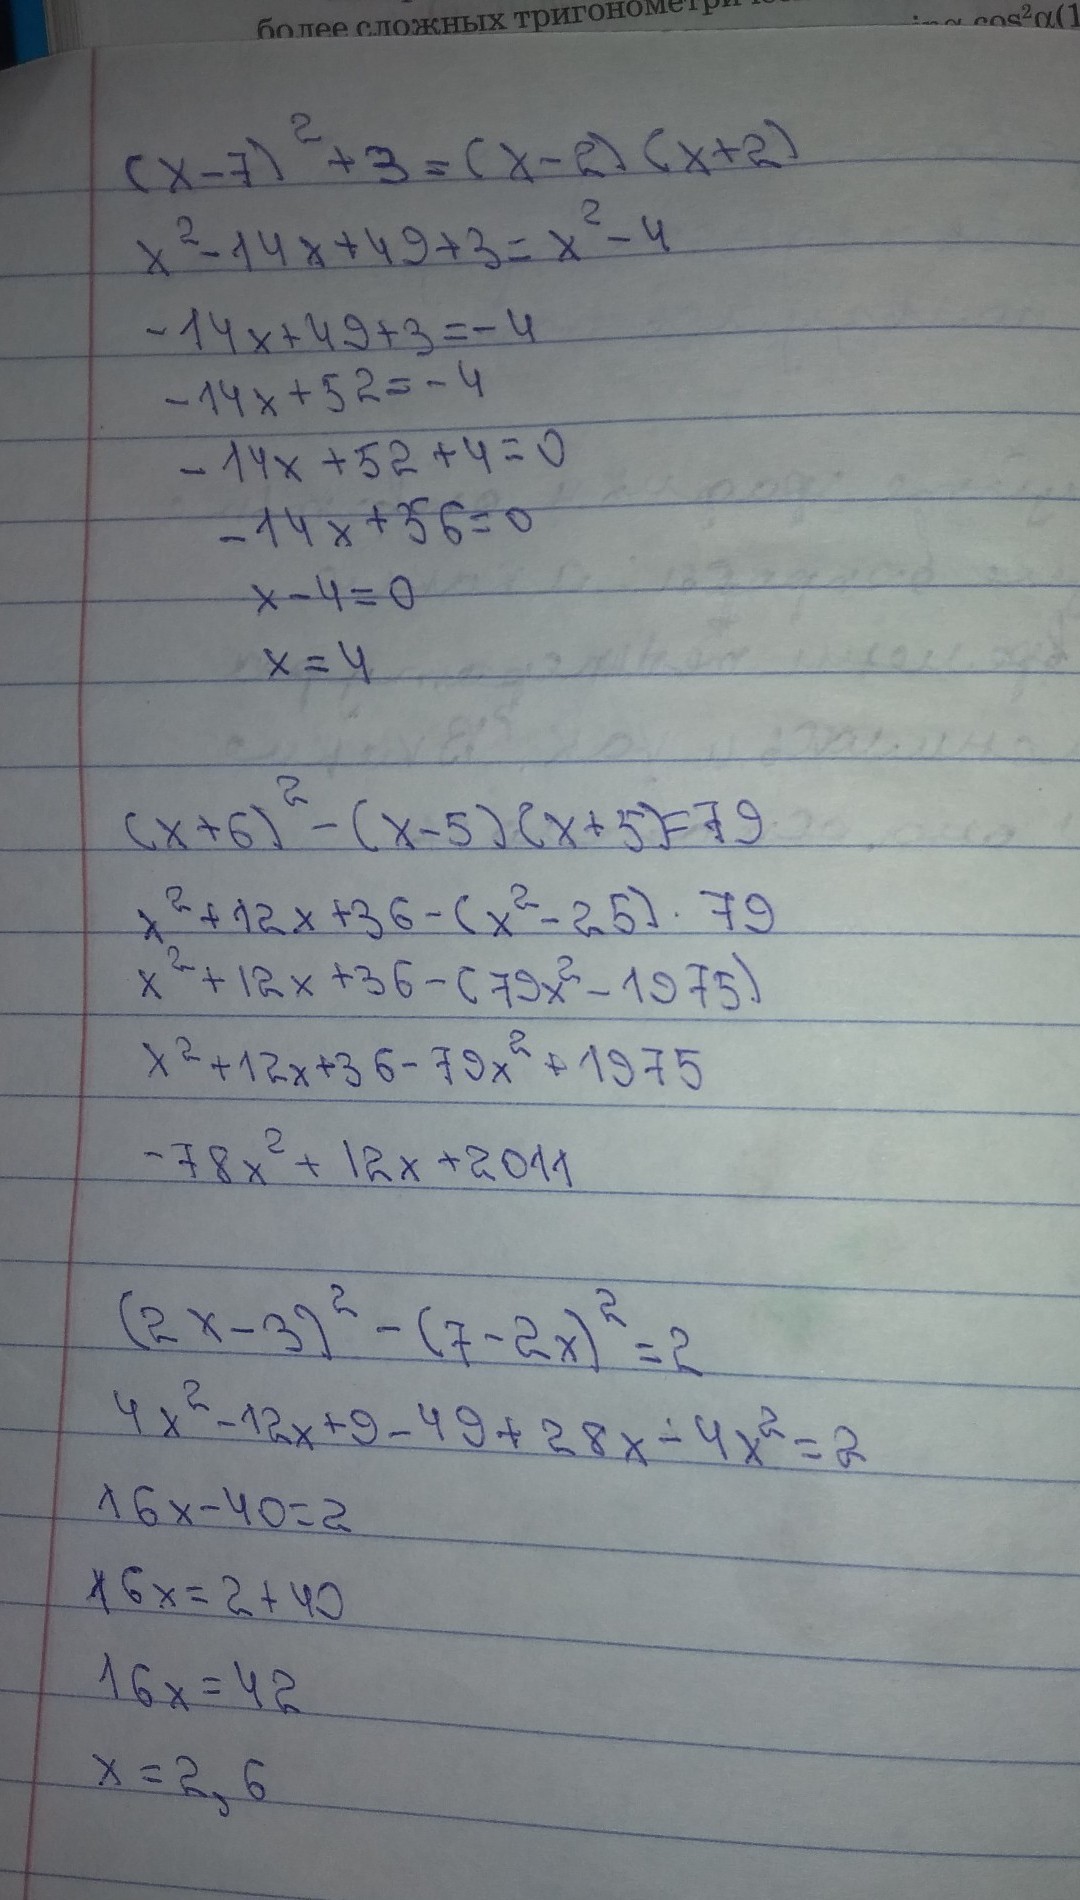 более сложных тригонометри
cos²α(1
(x-7)²+3=(x-2)(x+2)
x²-14x+49+3=x²-4
-14x+49+3=-4
-14x+52=-4
-14x+52+4=0
-14x+56=0
x-4=0
x=4
(x+6)²-(x-5)(x+5)=79
x²+12x+36-(x²-25)·79
x²+12x+36-(79x²-1975)
x²+12x+36-79x²+1975
-78x²+12x+2011
(2x-3)²-(7-2x)²=2
4x²-12x+9-49+28x-4x²=2
16x-40=2
16x=2+40
16x=42
x=2,6